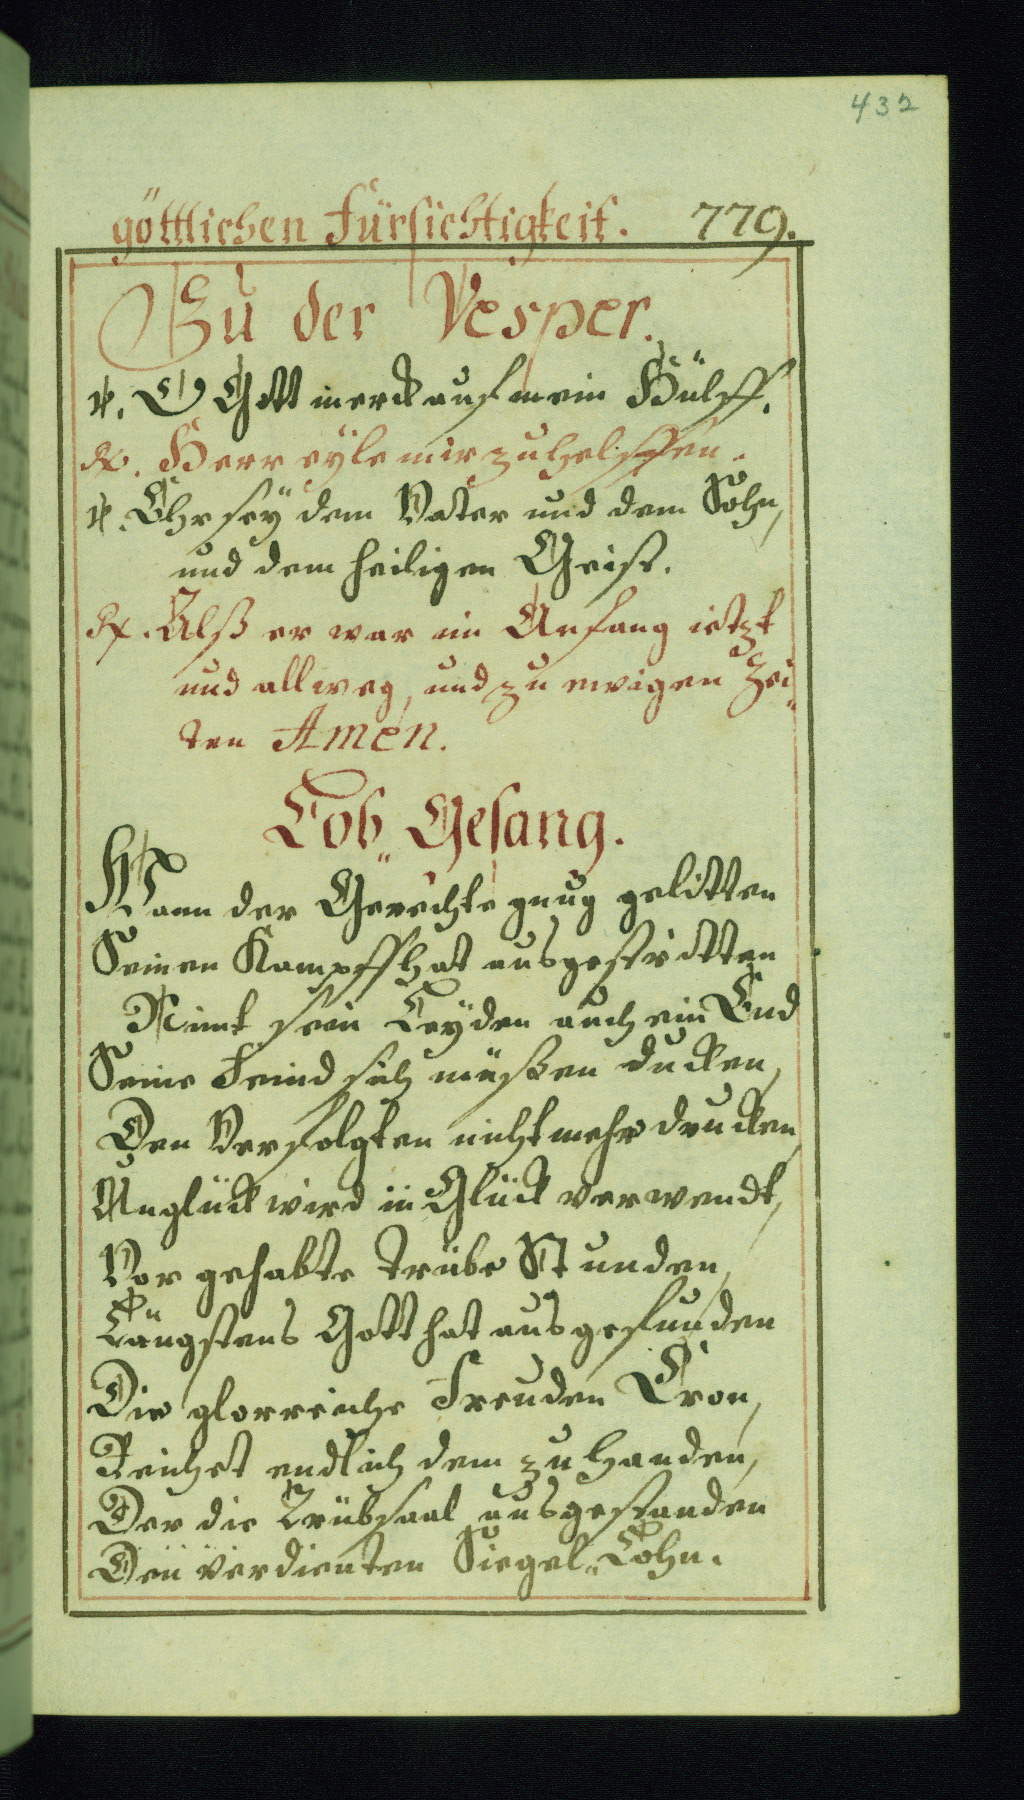 432
göttlichen Fürsichtigkeit. 779.
Zu der Vesper.
℣. O Gott merck auf mein Hülff,
℟. Herr eÿle mir zu helffen.
℣. Ehr seÿ dem Vater und dem Sohn,
und dem heiligen Geist.
℟. Alß er war im Anfang ietzt
und allweg, und zu ewigen Zei„
ten Amen.
Lob„Gesang.
Wann der Gerechte gnug gelitten
Seinen Kampff hat ausgestritten
Nimt sein Leÿden auch ein End
Seine Feind sich müßen ducken,
Den Verfolgten nicht mehr drucken,
Unglück wird in Glück verwendt,
Vor gehabte trübe Stunden,
Längstens Gott hat ausgefunden
Die glorreiche Freuden Cron,
Reichet endlich dem zu Handen,
Der die Trübsaal ausgestanden
Den verdienten Siegel„Lohn.